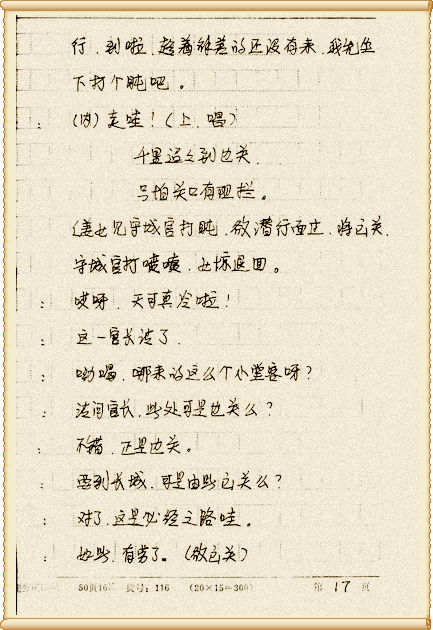 行，到啦，趁着解差的还没有来，我先坐
下打个盹吧。
： (内) 走哇！(上，唱)
千里迢迢到边关，
只怕关口有阻拦。
(姜女见守城官打盹，欲潜行而过，将过关，
守城官打喷嚏，女惊退回。
： 哎呀，天可真冷啦！
： 这一官长请了。
： 呦喝，哪来的这么个小堂客呀？
： 请问官长，此处可是边关么？
： 不错，正是边关。
： 要到长城，可是由此过关么？
： 对了，这是必经之路哇。
： 如此，有劳了。(欲过关)
50页16 货号：116 (20×15=300) 第 17 页